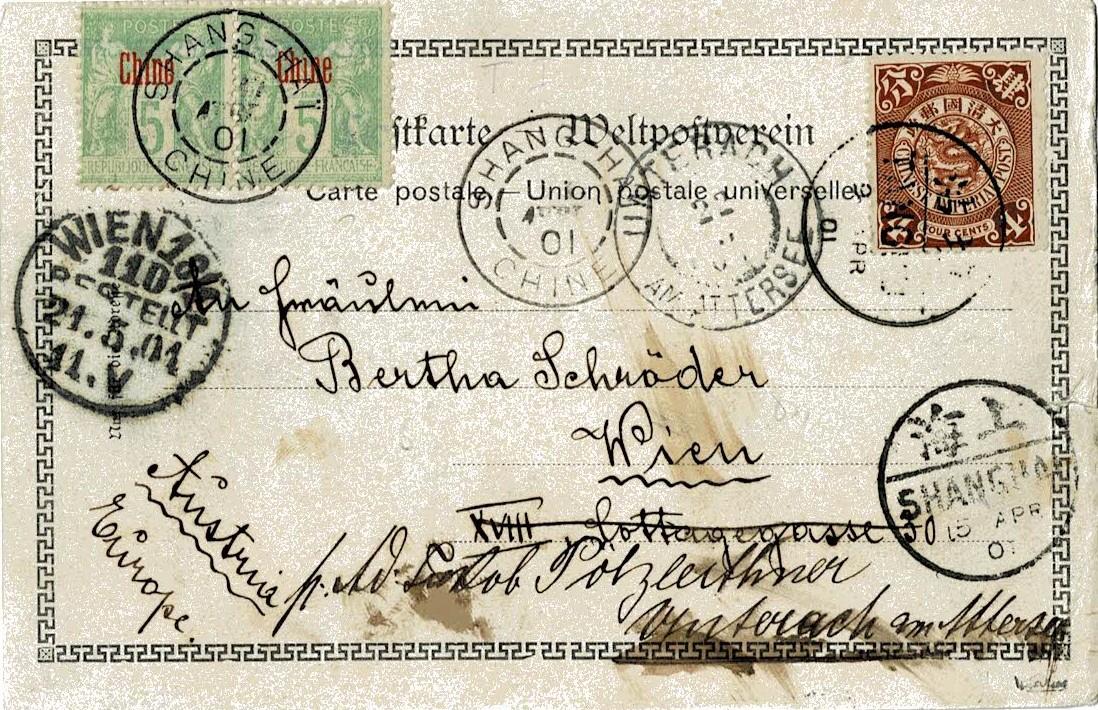 POSTES POSTES
Chine Chine
5 5
RÉPUBLIQUE FRANÇAISE
SHANG-HAÏ
01
CHINE
Weltpostverein
Carte postale – Union postale universelle
SHANG-HAÏ
01
CHINE
UNTERACH
AM ATTERSEE
大清國郵政
CHINESE IMPERIAL POST
FOUR CENTS
4
APR
01
WIEN 18/1
110
BESTELLT
21.5.01
11.V
An Fräulein
Bertha Schröder
Wien
XVIII Cottagegasse 30
Austria
Europe.
p. Ad. Jakob Pölzleithner
Unterach am Attersee
上海
SHANGHAI
15 APR
01